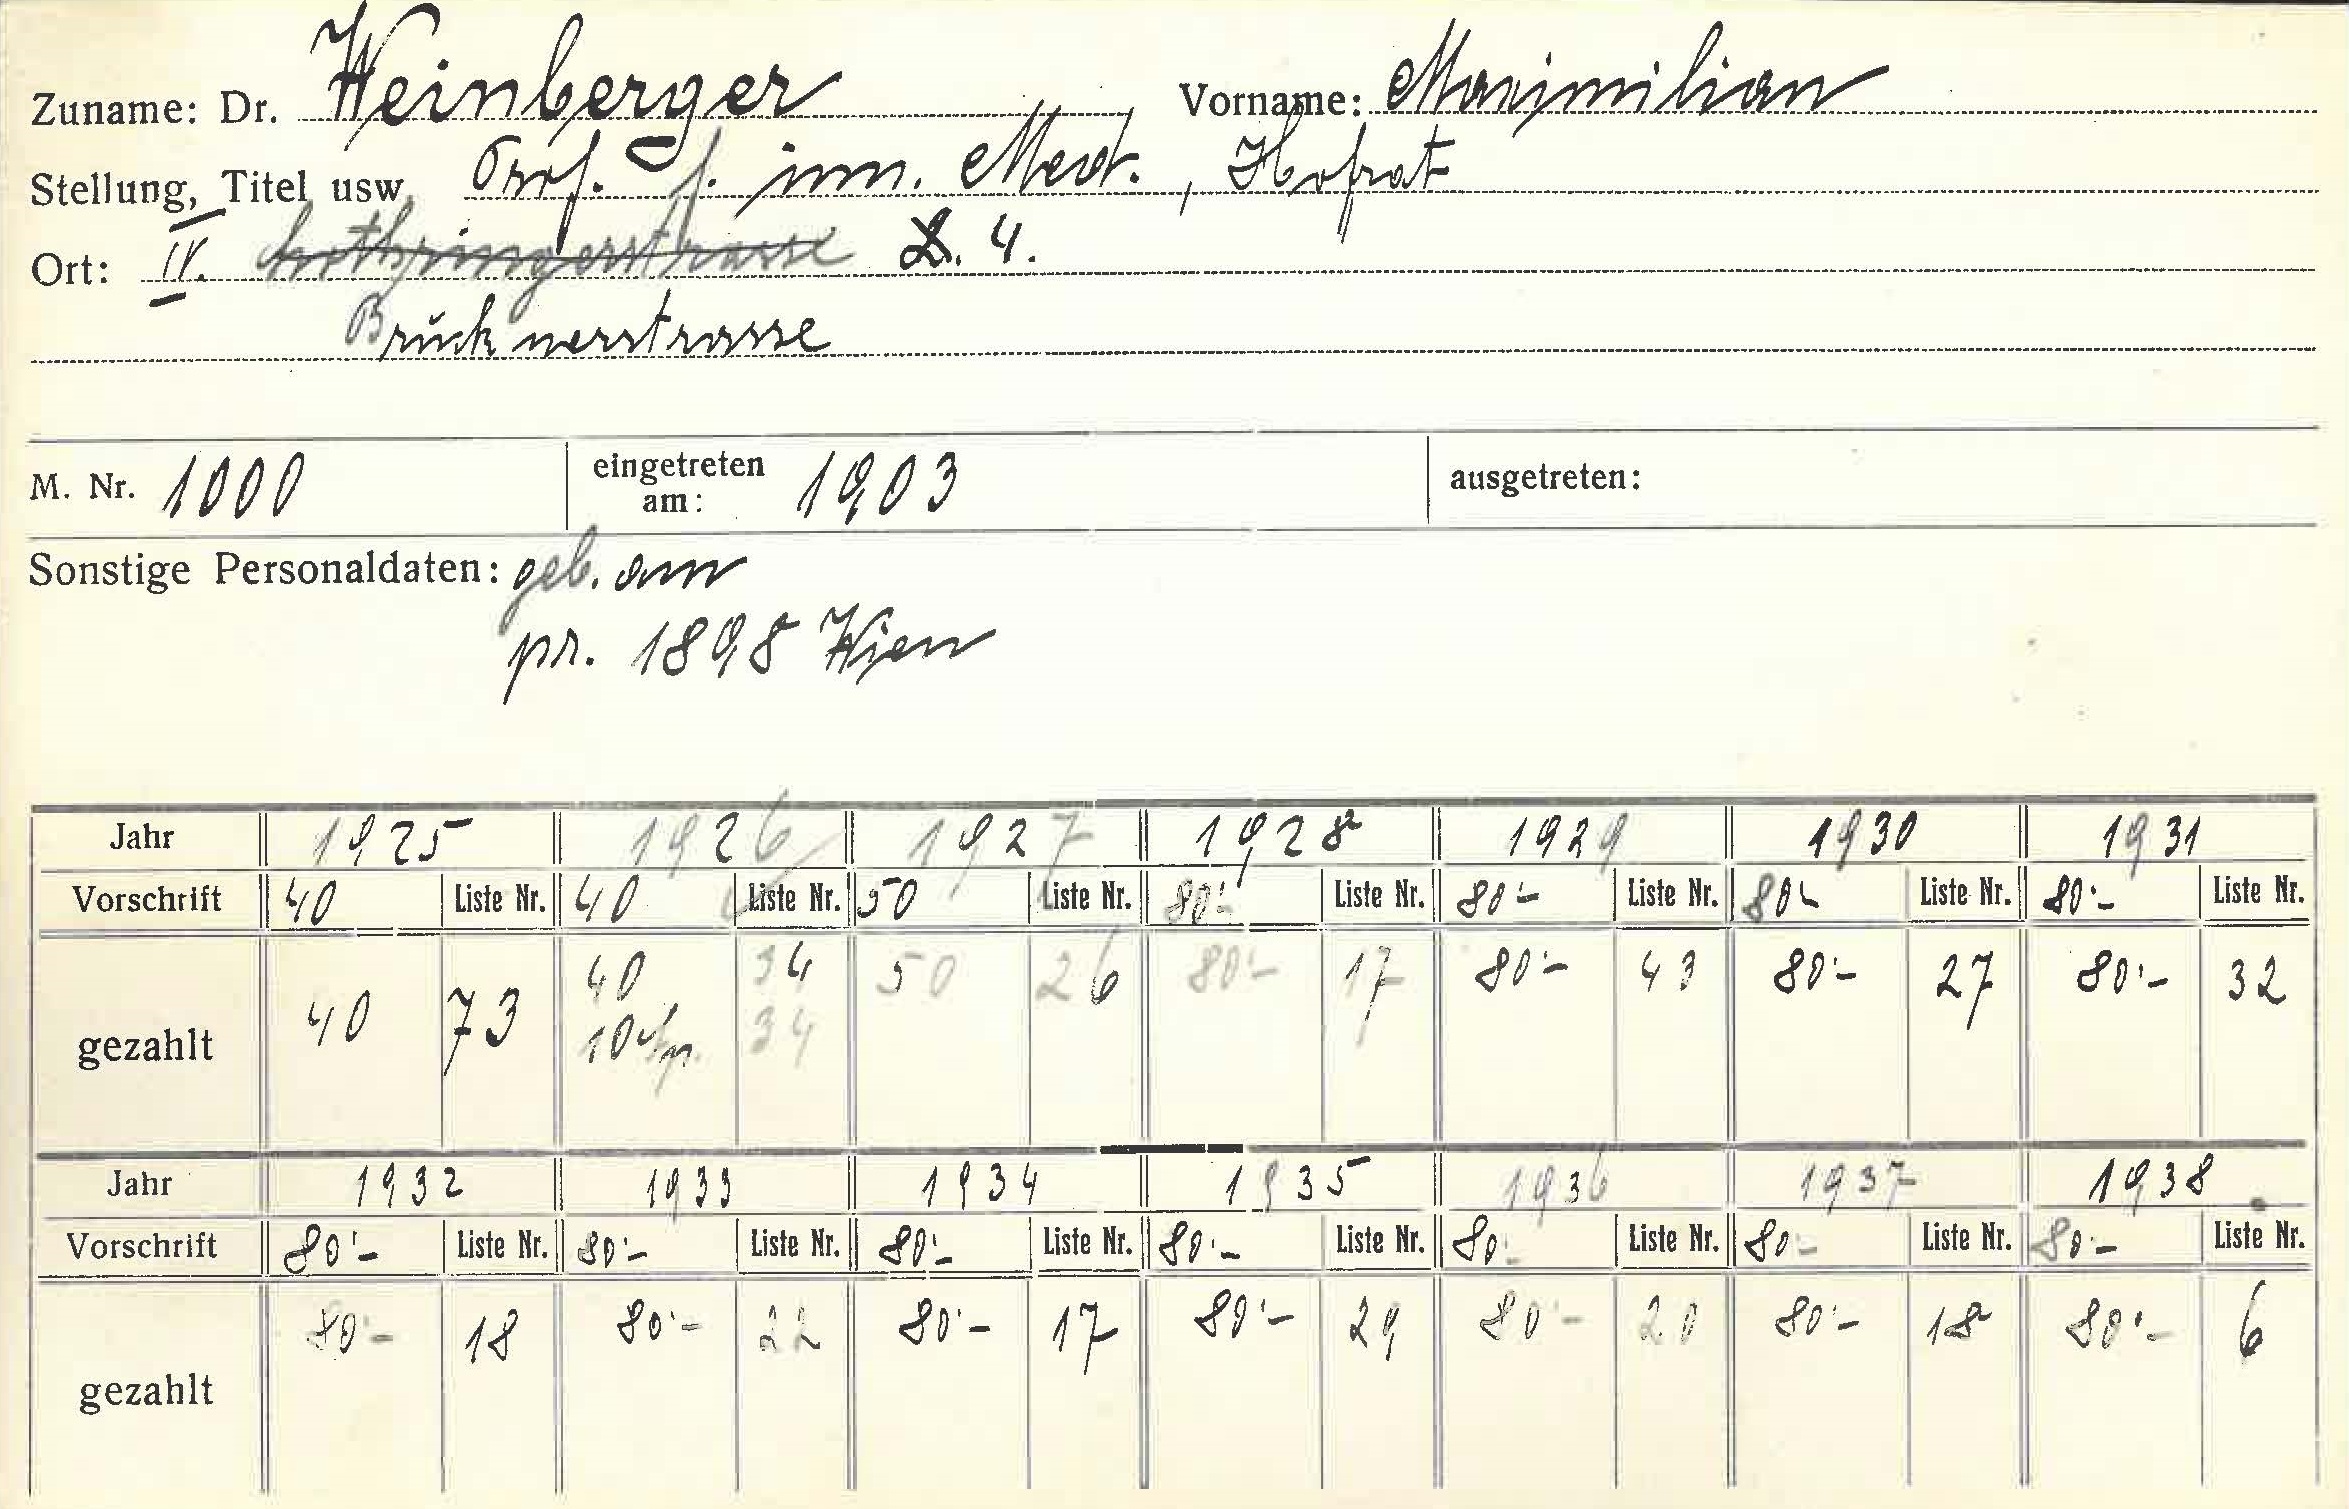 Zuname: Dr. Weinberger Vorname: Maximilian
Stellung, Titel usw. Prof. f. inn. Med., Hofrat
Ort: IV. Lothringerstrasse 4.
Brucknerstrasse
M. Nr. 1000 eingetreten am: 1903 ausgetreten:
Sonstige Personaldaten: geb. am
pr. 1898 Wien
Jahr 1925 1926 1927 1928 1929 1930 1931
Vorschrift 40 Liste Nr. 40 Liste Nr. 50 Liste Nr. 80·- Liste Nr. 80·- Liste Nr. 80·- Liste Nr. 80·- Liste Nr.
gezahlt 40 73 40 34 50 26 80·- 17 80·- 43 80·- 27 80·- 32
10 34
Jahr 1932 1933 1934 1935 1936 1937 1938
Vorschrift 80·- Liste Nr. 80·- Liste Nr. 80·- Liste Nr. 80·- Liste Nr. 80·- Liste Nr. 80·- Liste Nr. 80·- Liste Nr.
gezahlt 80·- 18 80·- 22 80·- 17 80·- 29 80·- 20 80·- 18 80·- 6